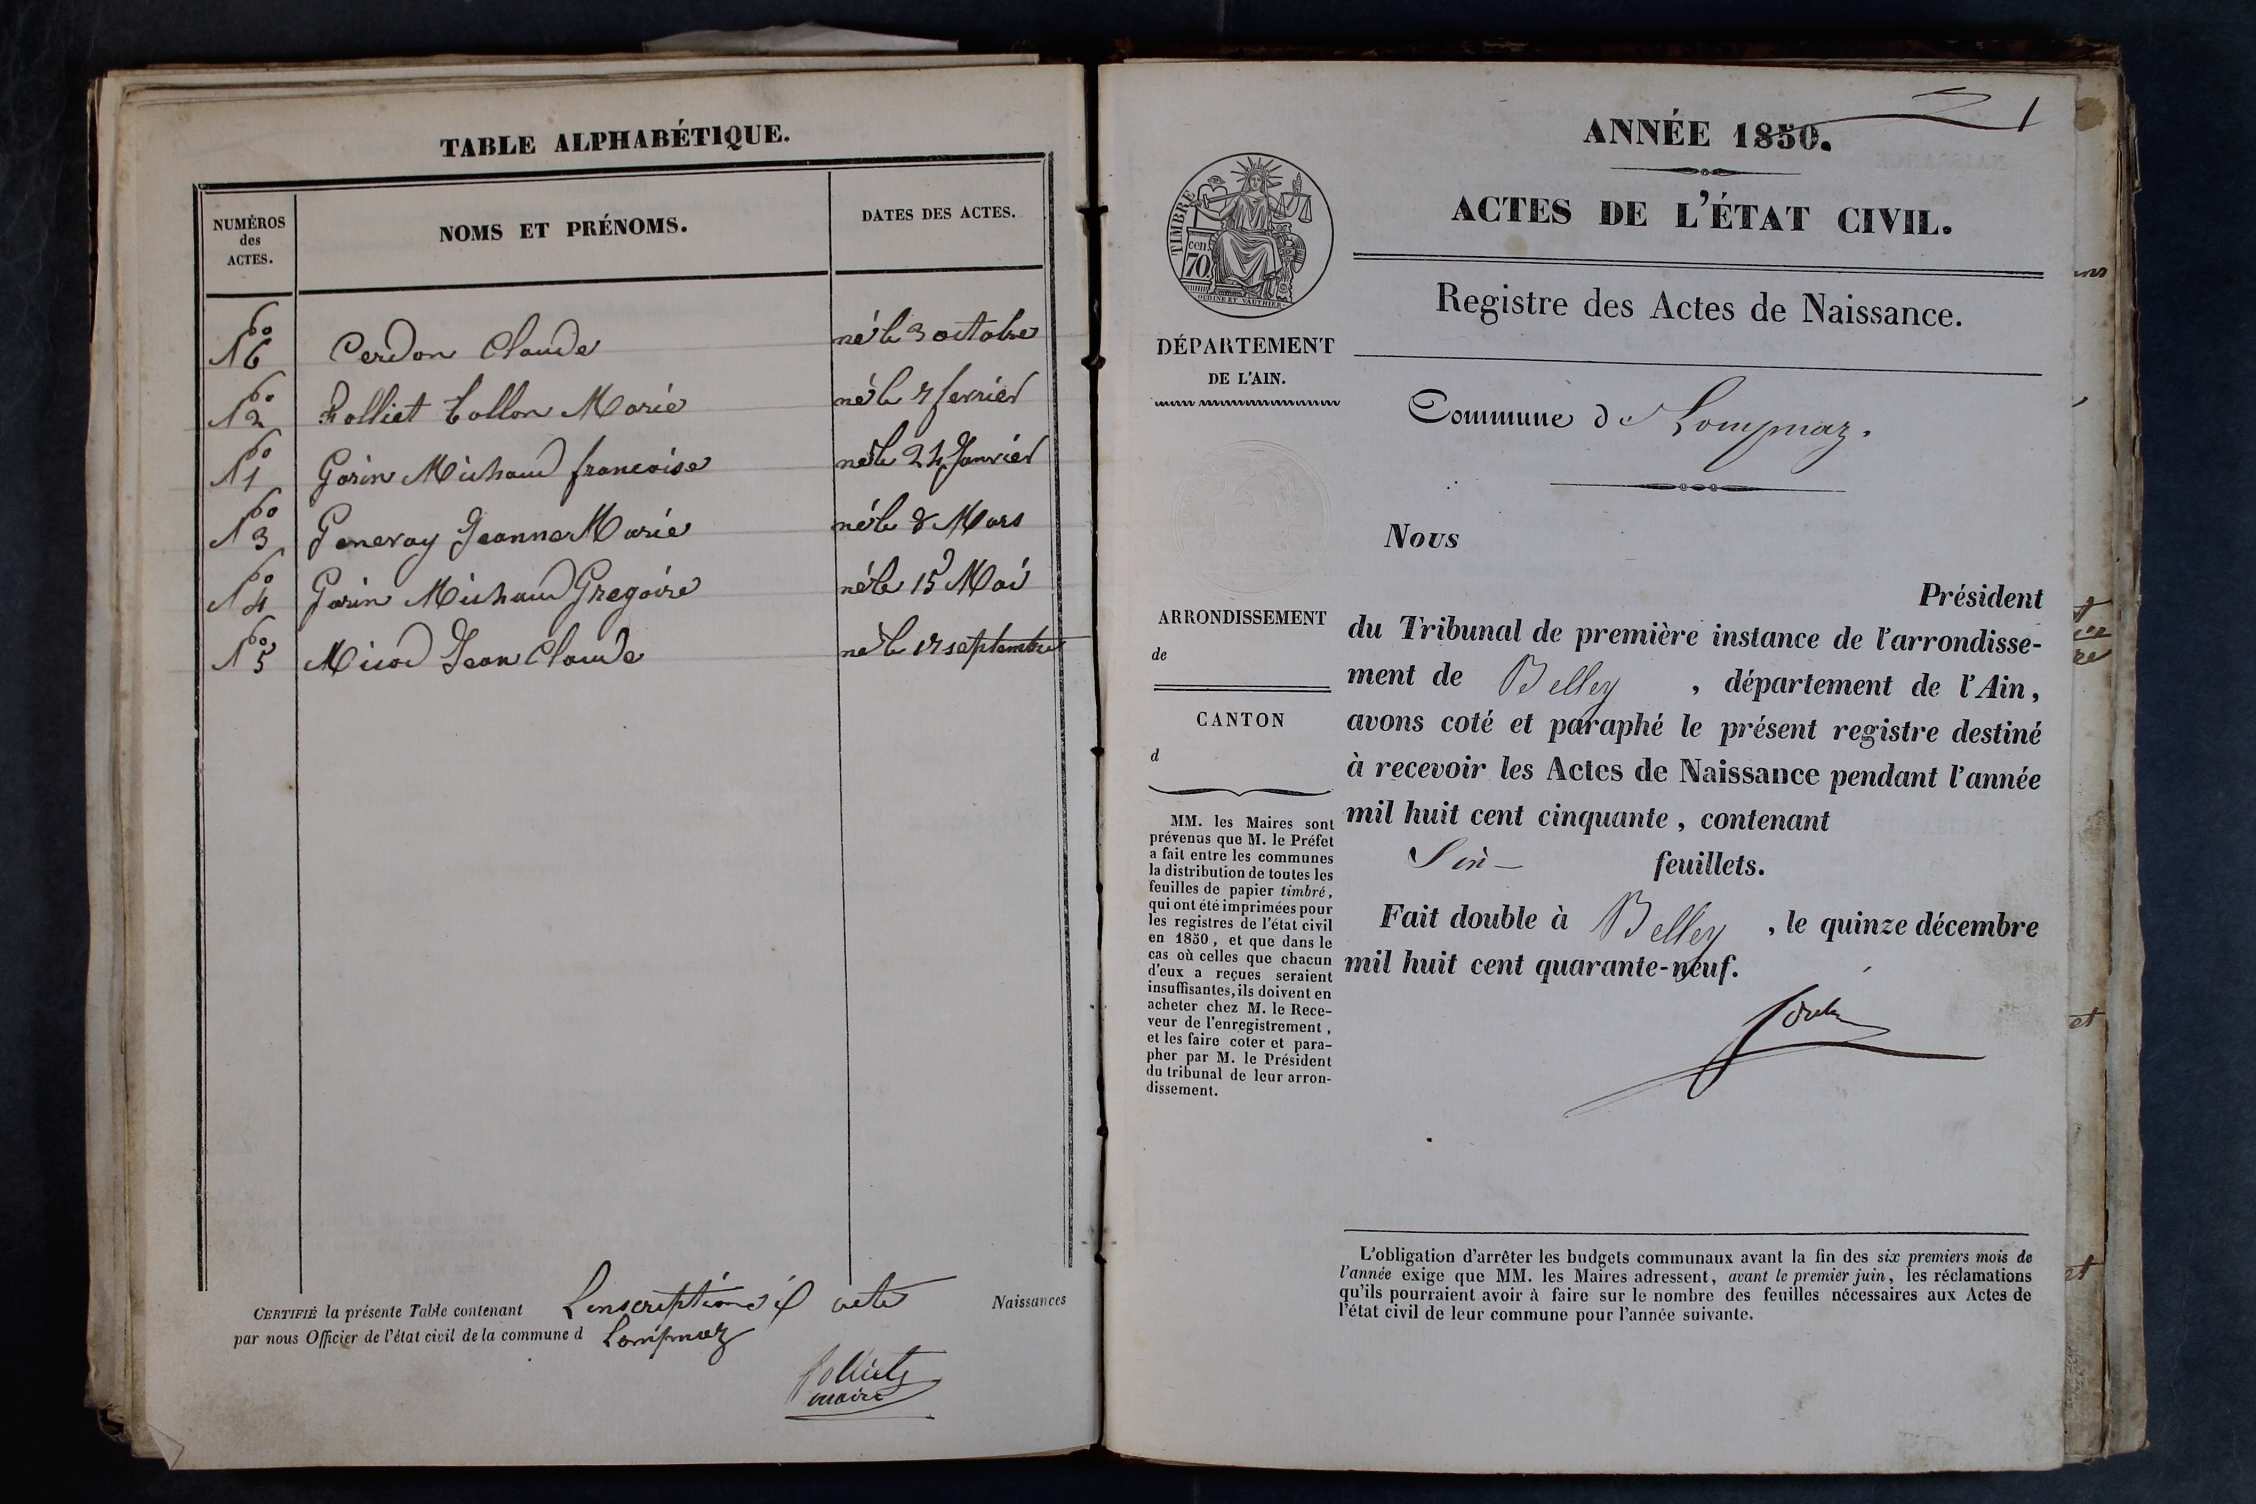 TABLE ALPHABÉTIQUE.
NUMÉROS
des
ACTES.
NOMS ET PRÉNOMS.
DATES DES ACTES.
No 6 Cerdon Claude né le 3 octobre
No 2 Folliet Collon Marie né le 7 fevrier
No 1 Gorin Michaud francoise né le 24 Janvier
No 3 Genevay Jeanne Marie né le 8 Mars
No 4 Gorin Michaud Gregoire né le 15 Mai
No 5 Micod Jean Claude né le 17 septembre
CERTIFIÉ la présente Table contenant L'inscription Naissances
par nous Officier de l'état civil de la commune d Lompnaz
Folliet
maire
1
ANNÉE 1850.
ACTES DE L'ÉTAT CIVIL.
TIMBRE
70 cen
OUDINE ET VAUTHIER
Registre des Actes de Naissance.
DÉPARTEMENT
DE L'AIN.
Commune de Lompnaz.
ARRONDISSEMENT
de
CANTON
d
MM. les Maires sont
prévenus que M. le Préfet
a fait entre les communes
la distribution de toutes les
feuilles de papier timbré,
qui ont été imprimées pour
les registres de l'état civil
en 1850, et que dans le
cas où celles que chacun
d'eux a reçues seraient
insuffisantes, ils doivent en
acheter chez M. le Rece-
veur de l'enregistrement,
et les faire coter et para-
pher par M. le Président
du tribunal de leur arron-
dissement.
Nous
Président
du Tribunal de première instance de l'arrondisse-
ment de Belley, département de l'Ain,
avons coté et paraphé le présent registre destiné
à recevoir les Actes de Naissance pendant l'année
mil huit cent cinquante, contenant
Six feuillets.
Fait double à Belley, le quinze décembre
mil huit cent quarante-neuf.
L'obligation d'arrêter les budgets communaux avant la fin des six premiers mois de
l'année exige que MM. les Maires adressent, avant le premier juin, les réclamations
qu'ils pourraient avoir à faire sur le nombre des feuilles nécessaires aux Actes de
l'état civil de leur commune pour l'année suivante.